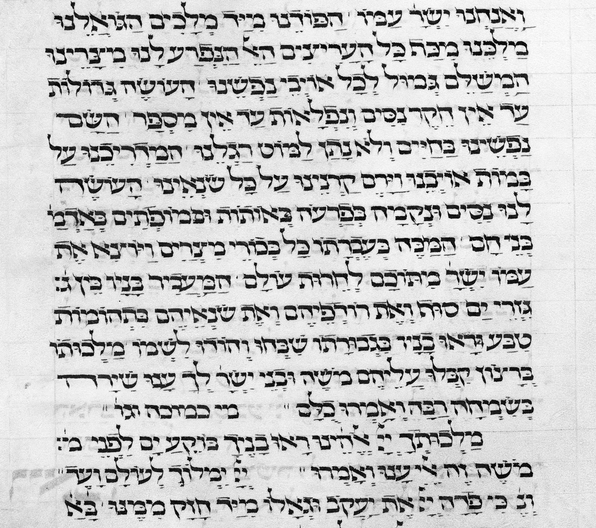 ואנחנו ישר עמו הפודנו מיד מלכים הגואלנו
מלכנו מכף כל העריצים הא הנפרע לנו מצרינו
המשלם גמול לכל אויבי נפשנו העושה גדולות
עד אין חקר נסים ונפלאות עד אין מספר השם
נפשינו בחיים ולא נתן למוט רגלנו המדריכנו על
במות אויבנו וירם קרנינו על כל שנאינו העושה
לנו נסים ונקמה בפרעה באותות ובמופתים באדמ
בני חם המכה בעברתו כל בכורי מצרים ויוצא את
עמו ישר מתוכם לחרות עולם המעביר בניו בין ג
גזרי ים סוף ואת רודפיהם ואת שנאיהם בתהומות
טבע וראו בניו גבורתו שבחו והודו לשמו מלכותו
ברצון קבלו עליהם משה ובני ישר לך ענו שירה
בשמחה רבה ואמרו כלם מי כמוכה וגו
מלכותך יי אהינו ראו בניך בוקע ים לפני מ
משה זה אי ענו ואמרו יי ימלוך לעולם ועד
ונ כי פדה יי את יעקב וגאלו מיד חזק ממנו בא